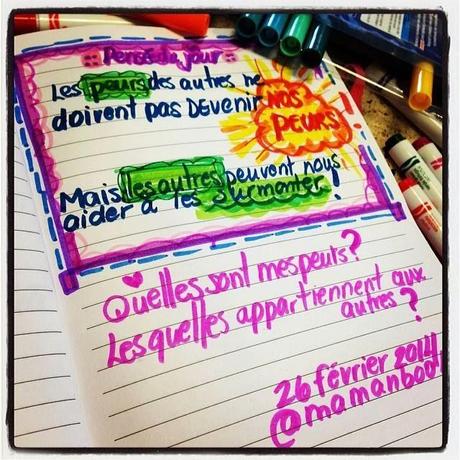 :: Pensée du jour ::
Les peurs des autres ne
doivent pas DEVENIR NOS
PEURS!
Mais les autres peuvent nous
aider à les surmonter!
Quelles sont mes peurs?
Lesquelles appartiennent aux
autres?
26 février 2014